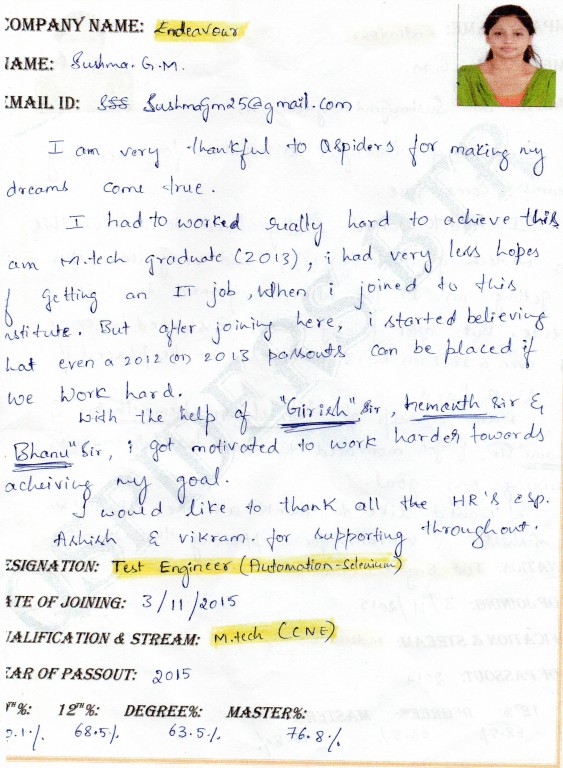 COMPANY NAME: Endeavour
NAME: Sushma. G.M.
EMAIL ID: SushmaGm25@gmail.com
I am very thankful to Qspiders for making my
dreams come true.
I had to worked really hard to achieve this
am M.tech graduate (2013), i had very less hopes
f getting an IT job, When i joined to this
nstitute. But after joining here, i started believing
hat even a 2012 (or) 2013 passouts can be placed if
we work hard.
with the help of "Girish" sir, Hemanth sir &
Bhanu" Sir, i got motivated to work harder towards
acheiving my goal.
I would like to thank all the HR'S esp.
Ashish & vikram. for supporting throughout.
ESIGNATION: Test Engineer (Automation-Selenium)
ATE OF JOINING: 3/11/2015
UALIFICATION & STREAM: M.tech (CNE)
EAR OF PASSOUT: 2015
TH%: 12TH%: DEGREE%: MASTER%:
2.1% 68.5% 63.5% 76.8%